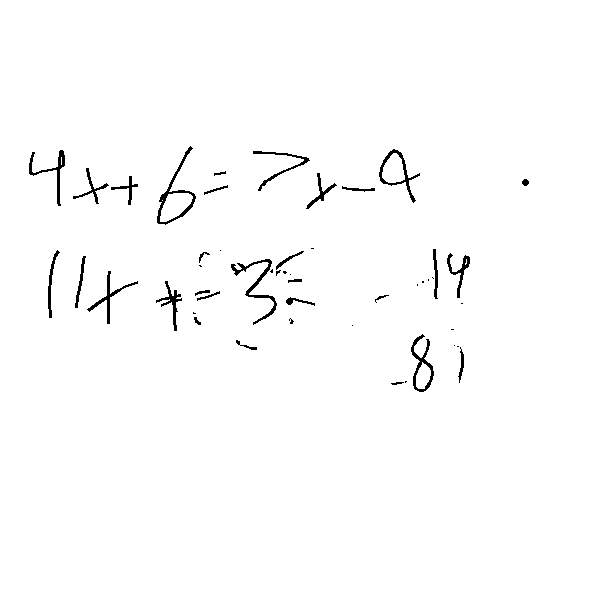 4x+6=7x-9
11x = 3
- 14
-81